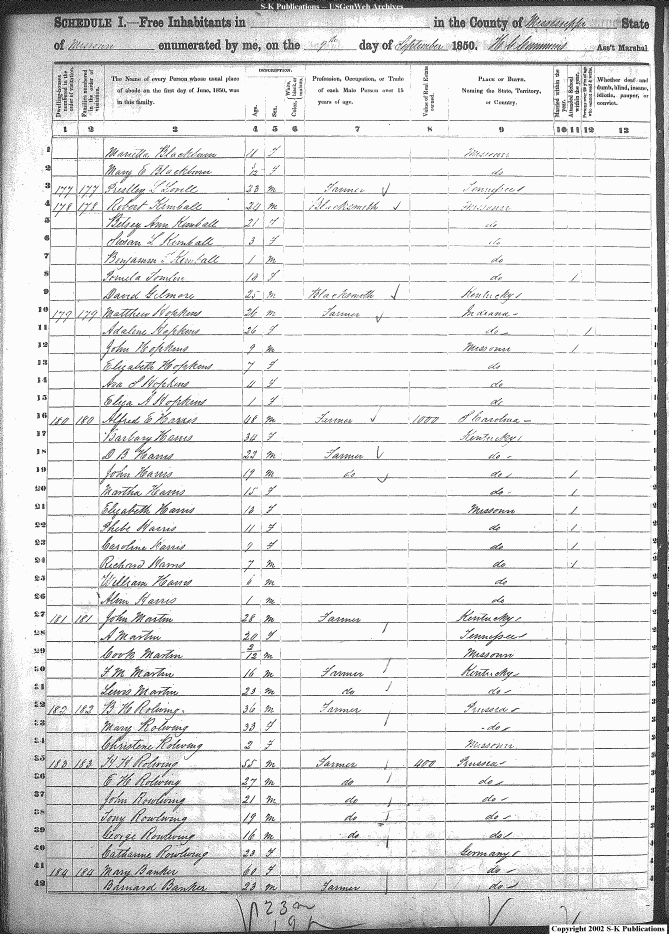 S-K Publications – USGenWeb Archives
SCHEDULE I.—Free Inhabitants in in the County of Mississippi State
of Missouri enumerated by me, on the 9th day of September 1850. Ass't Marshal
Dwelling-houses numbered in the order of visitation.
Families numbered in the order of visitation.
The Name of every Person whose usual place of abode on the first day of June, 1850, was in this family.
DESCRIPTION.
Age.
Sex.
White, black, or mulatto.
Color,
Profession, Occupation, or Trade of each Male Person over 15 years of age.
Value of Real Estate owned.
PLACE OF BIRTH. Naming the State, Territory, or Country.
Married within the year.
Attended School within the year.
Whether deaf and dumb, blind, insane, idiotic, pauper, or convict.
1 2 3 4 5 6 7 8 9 10 11 12 13
1 Blackburn 11 F Missouri
2 Mary C Blackburn /12 F do
3 177 177 Presley L Lovell 33 m Farmer Tennessee
4 178 178 Robert Kimball 24 m Blacksmith Missouri
5 Betsey Ann Kimball 21 F do
6 Susan L Kimball 3 F do
7 Benjamin F Kimball 1 m do
8 F do 1
9 David Gilmore 25 m Blacksmith Kentucky
10 179 179 Matthew Hopkins 26 m Farmer Indiana
11 Adaline Hopkins 26 F do 1
12 John Hopkins 9 m Missouri 1
13 Elizabeth Hopkins 7 F do
14 Hopkins 4 F do
15 Eliza A Hopkins 1 F do
16 180 180 Alfred E Harris 48 m Farmer 1000 S Carolina
17 Barbary Harris 34 F Kentucky
18 D B Harris 23 m Farmer do
19 John Harris 19 m do do 1
20 Martha Harris 15 F do 1
21 Elizabeth Harris 13 F Missouri 1
22 Phebe Harris 11 F do 1
23 Caroline Harris 9 F do 1
24 Richard Harris 7 m do 1
25 William Harris 6 m do
26 Harris 1 m do
27 181 181 John Martin 28 m Farmer Kentucky
28 A Martin 20 F Tennessee
29 Cook Martin 2/12 m Missouri
30 F M Martin 16 m Farmer Kentucky
31 Lewis Martin 23 m do do
32 182 182 B H Rolwing 36 m Farmer Prussia
33 Mary Rolwing 33 F do
34 Christene Rolwing 2 F Missouri
35 183 183 H H Rolwing 55 m Farmer 400 Prussia
36 E H Rolwing 27 m do do
37 John Rowlwing 21 m do do
38 Tony Rowlwing 19 m do do
39 George Rowlwing 16 m do do
40 Catharine Rowlwing 23 F Germany
41 184 184 Mary Banker 60 F do
42 Barnard Banker 23 m Farmer do
23 m
19 F
Copyright 2002 S-K Publications